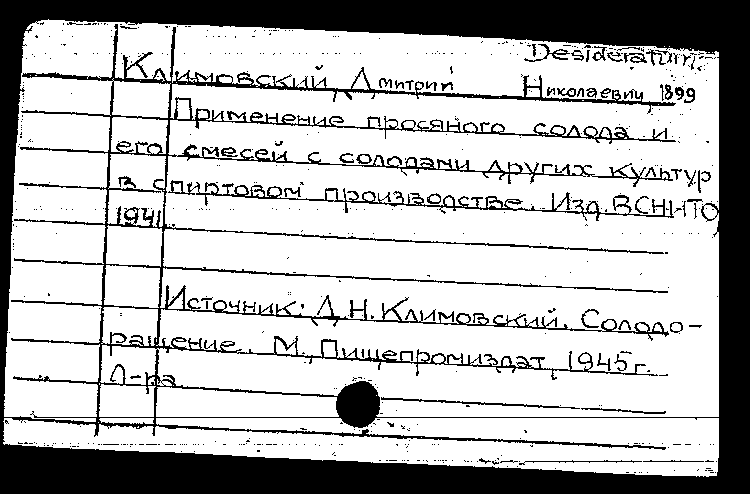 Desideratum.
Климовский, Дмитрий Николаевич, 1899
Применение просяного солода и
его смесей с солодами других культур
в спиртовом производстве. Изд. ВСНИТО
1941.
Источник: Д.Н. Климовский. Солодо-
ращение. М., Пищепромиздат, 1945 г.
Л-ра